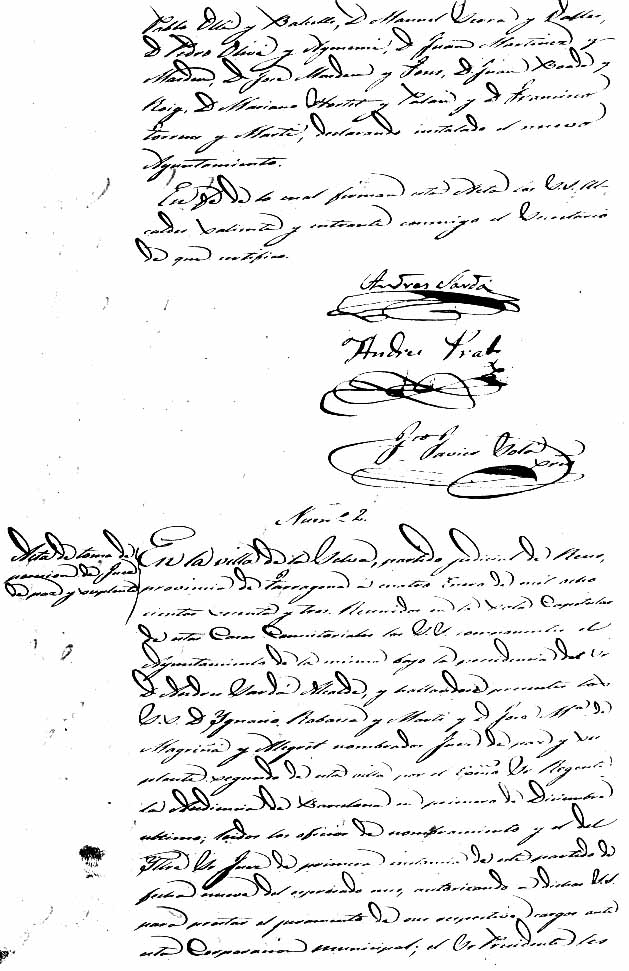 Pablo Olle y Batalla, D. Manuel y Valles,
D. Pedro Oliva y Aymemi, D. Juan Martinez y
D. Jose y Fons, D. Juan Boada y
Roig, D. Mariano y y D. Francisco
Torrens y Marti, declarando instalado el nuevo
Ayuntamiento.
En fe de lo cual firman esta Acta los S.S. Al-
caldes saliente y entrante conmigo el Secretario
de que certifico.
Andres Sardá
Andres Prat
Javier Solá
Srio
Num.º 2.
Acta de toma de
posesion de Juez
de paz y suplente
En la villa de la Selva, partido judicial de Reus,
provincia de Tarragona à cuatro Enero de mil ocho
cientos sesenta y tres. Reunidos en la sala Capitular
de estas Casas Consistoriales los S.S. componentes el
Ayuntamiento de la misma bajo la presidencia del Sr
D. Andres Sardá Alcalde, y hallandose presentes los
S.S. D. Ygnacio Rabassa y Marti y d. Jose M.ª de
Magriñá y nombrados Juez de paz y su
plente segundo de esta villa por el Exmo Sr Regente
la Audiencia de Barcelona en primero de Diciembre
ultimo; leidos los oficios de nombramiento y el del
Iltre Sr Juez de primera instancia de este partido de
fecha nueve del espresado mes, autorizando a dichos S.S.
para prestar el juramento de sus respectivos cargos ante
esta Corporacion municipal; el Sr Presidente les